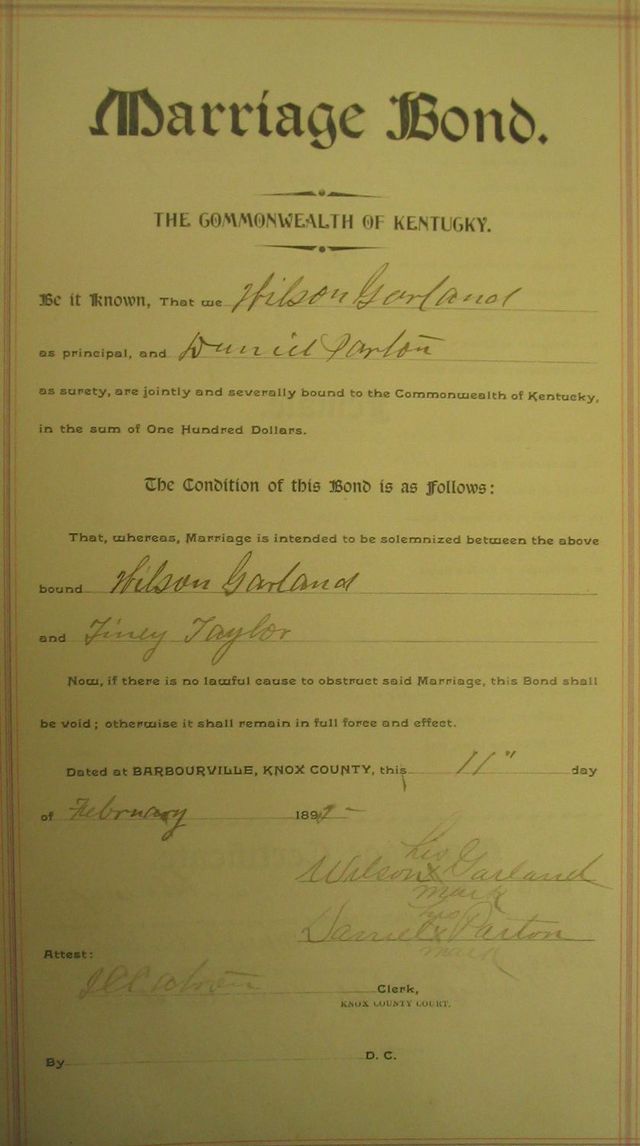 Marriage Bond.
THE COMMONWEALTH OF KENTUCKY.
Be it Known, That we Wilson Garland
as principal, and Daniel Parton
as surety, are jointly and severally bound to the Commonwealth of Kentucky,
in the sum of One Hundred Dollars.
The Condition of this Bond is as Follows:
That, whereas, Marriage is intended to be solemnized between the above
bound Wilson Garland
and Tiney Taylor
Now, if there is no lawful cause to obstruct said Marriage, this Bond shall
be void; otherwise it shall remain in full force and effect.
Dated at BARBOURVILLE, KNOX COUNTY, this 11" day
of February 189
his
Wilson x Garland
mark
his
Daniel x Parton
mark
Attest:
Clerk,
KNOX COUNTY COURT.
By D. C.